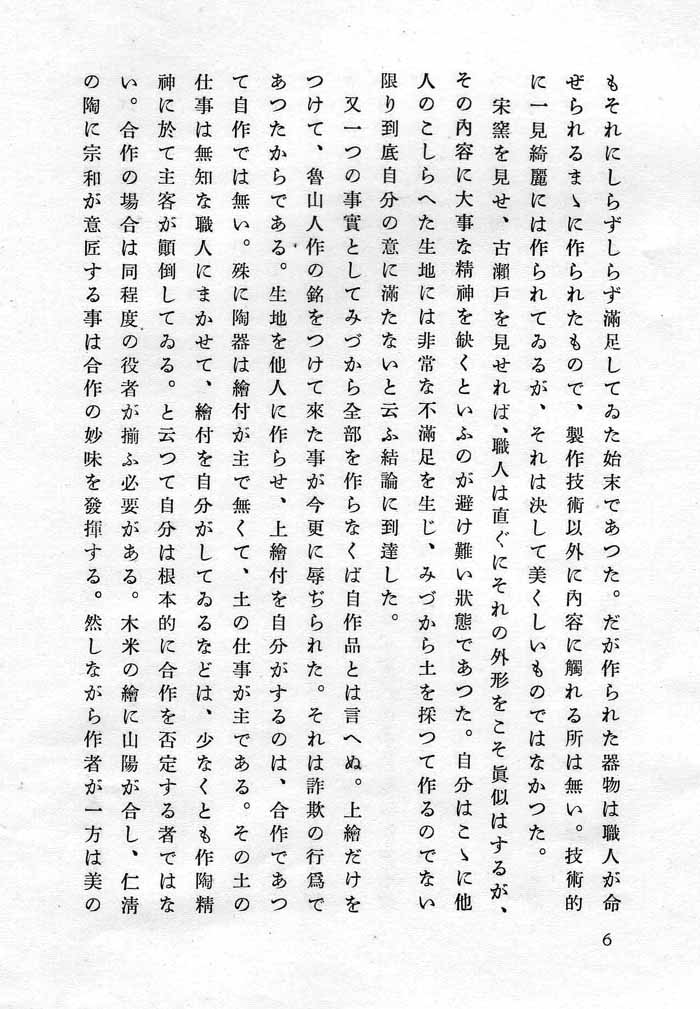 もそれにしらずしらず滿足してゐた始末であつた。だが作られた器物は職人が命
ぜられるまゝに作られたもので、製作技術以外に內容に觸れる所は無い。技術的
に一見綺麗には作られてゐるが、それは決して美くしいものではなかつた。
宋窯を見せ、古瀨戶を見せれば、職人は直ぐにそれの外形をこそ眞似はするが、
その內容に大事な精神を缺くといふのが避け難い狀態であつた。自分はこゝに他
人のこしらへた生地には非常な不滿足を生じ、みづから土を採つて作るのでない
限り到底自分の意に滿たないと云ふ結論に到達した。
又一つの事實としてみづから全部を作らなくば自作品とは言へぬ。上繪だけを
つけて、魯山人作の銘をつけて來た事が今更に辱ぢられた。それは詐欺の行爲で
あつたからである。生地を他人に作らせ、上繪付を自分がするのは、合作であつ
て自作では無い。殊に陶器は繪付が主で無くて、土の仕事が主である。その土の
仕事は無知な職人にまかせて、繪付を自分がしてゐるなどは、少なくとも作陶精
神に於て主客が顚倒してゐる。と云つて自分は根本的に合作を否定する者ではな
い。合作の場合は同程度の役者が揃ふ必要がある。木米の繪に山陽が合し、仁淸
の陶に宗和が意匠する事は合作の妙味を發揮する。然しながら作者が一方は美の
6